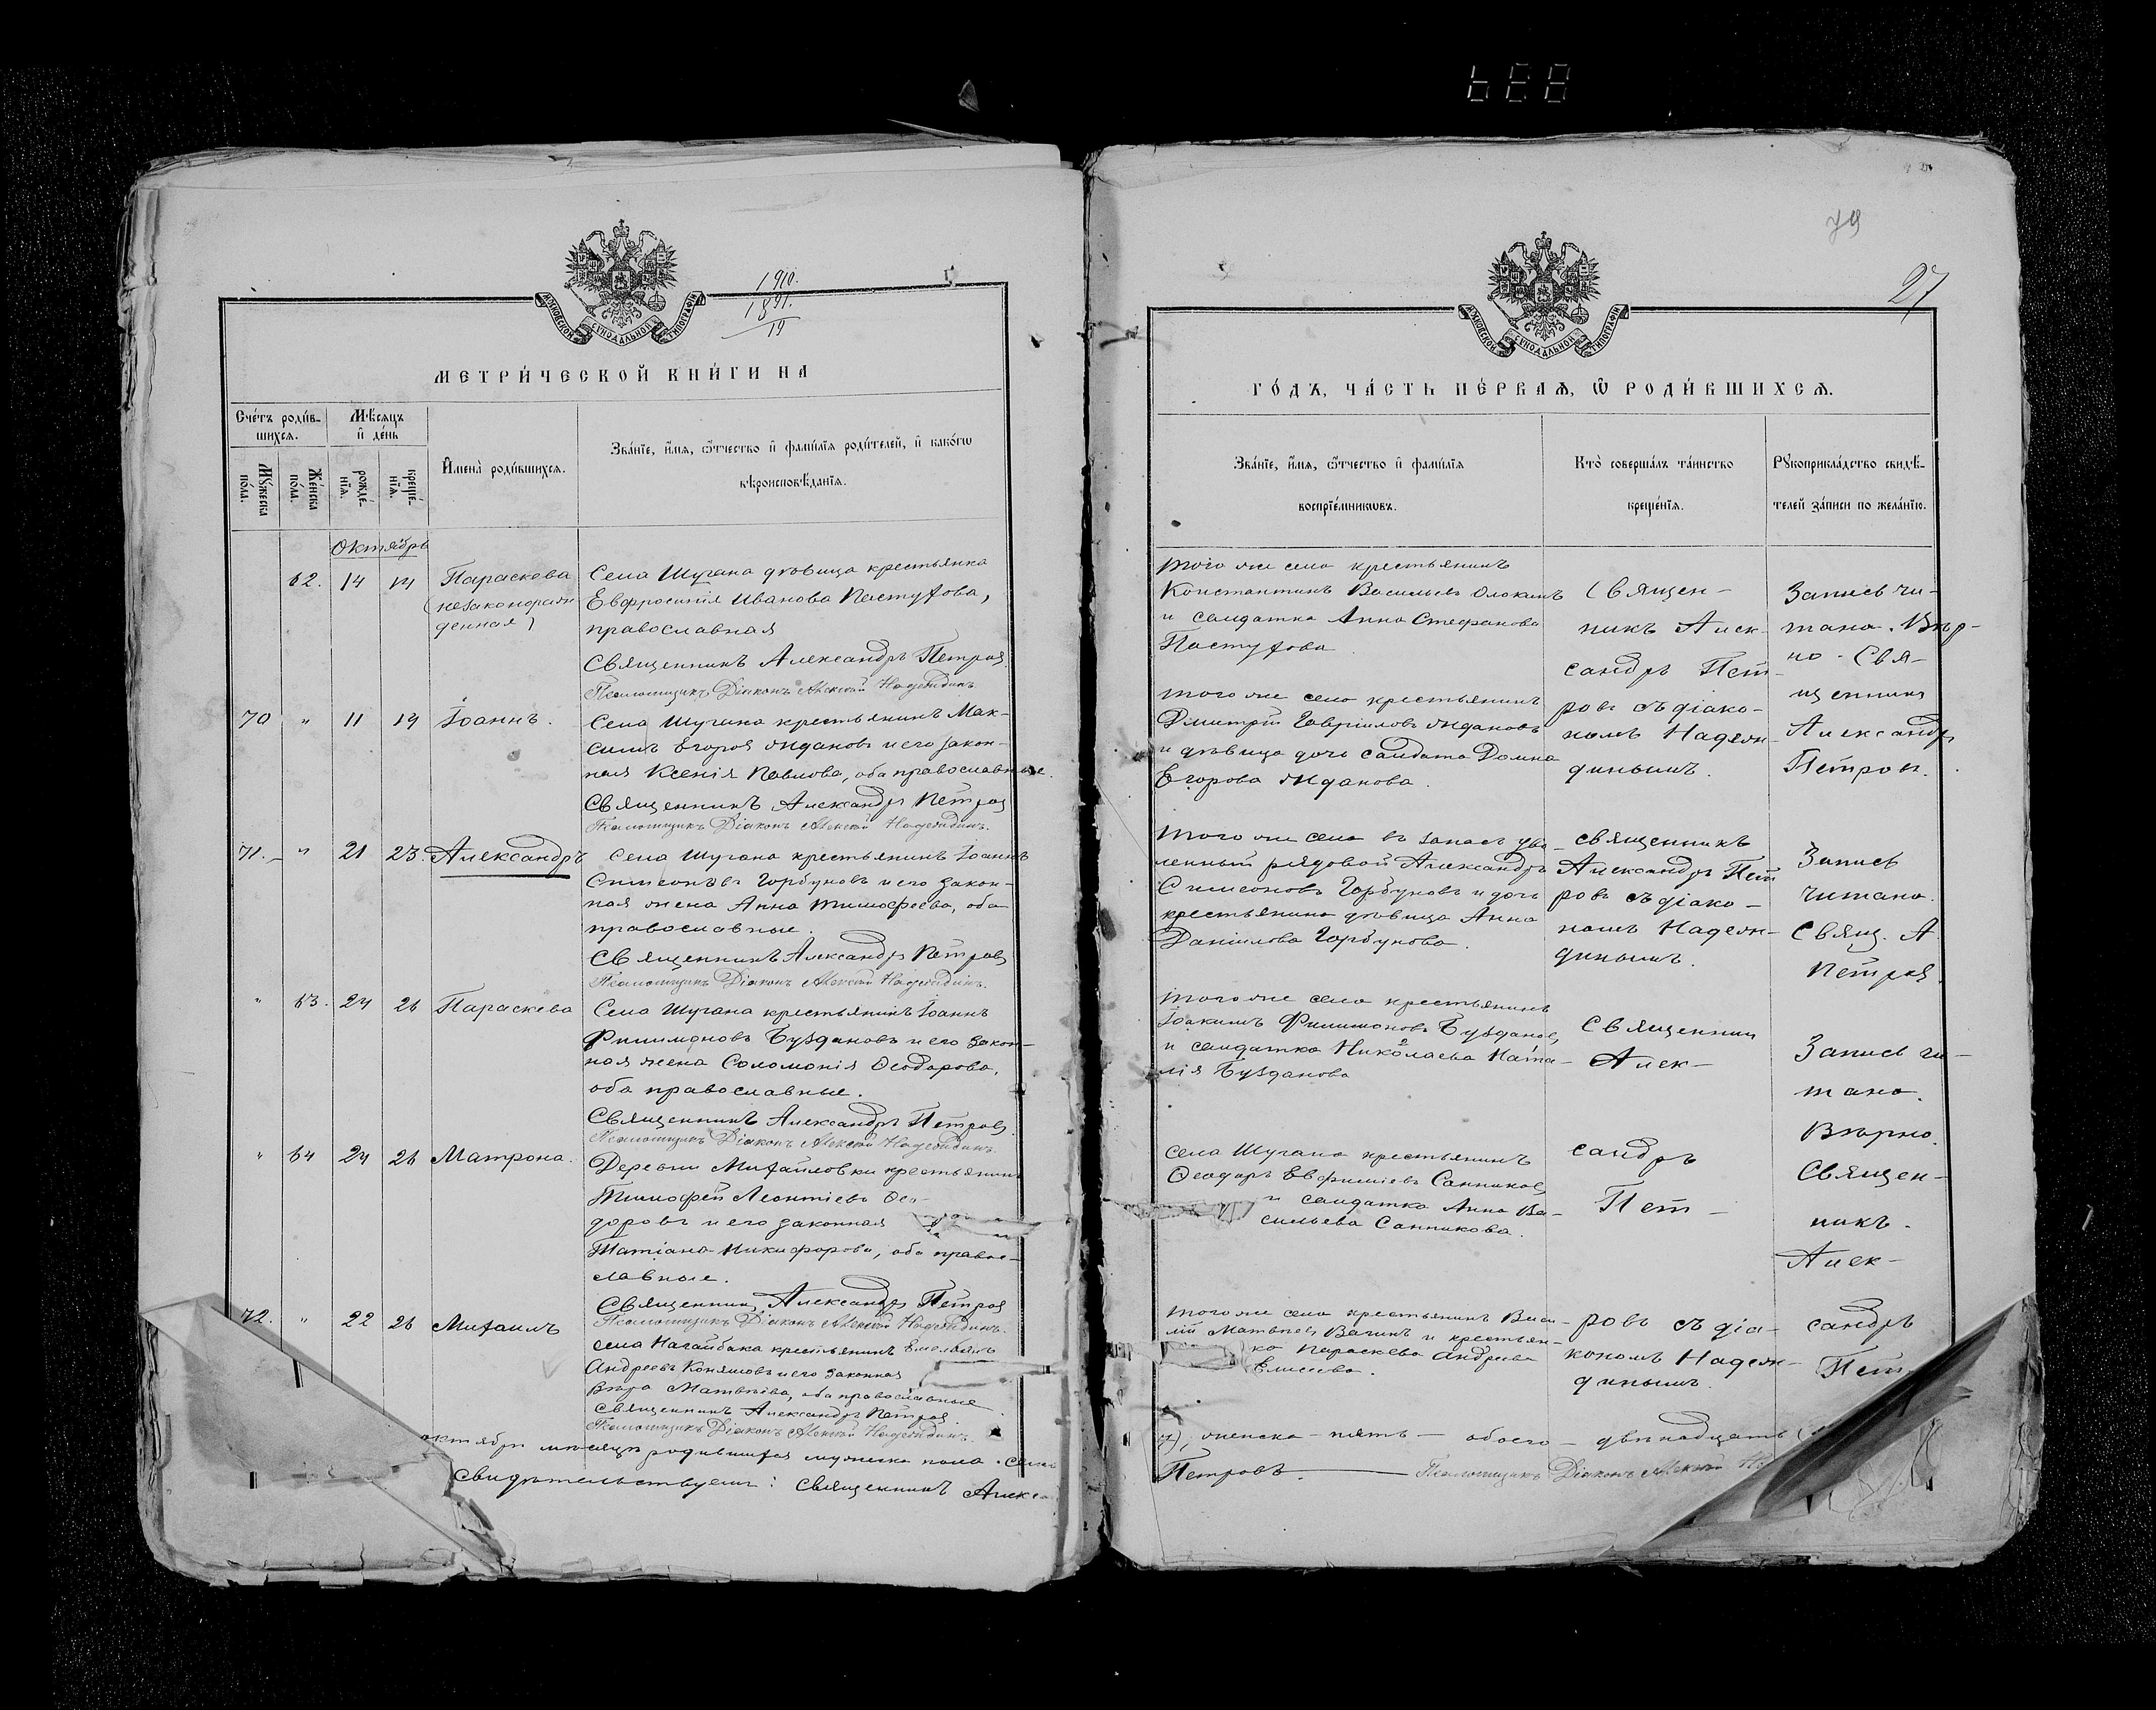 1910.
1891.
19
МЕТРИ́ЧЕСКОЙ КНИ́ГИ НА
Сче́тъ роди́в-
шихсѧ.
Мѣ́сяцъ
и҆ де́нь
Мꙋ́жеска
по́ла.
Же́нска
по́ла.
рожде́-
нїѧ.
креще́-
нїѧ.
И҆мена̀ роди́вшихсѧ.
Зва́нїе, и҆́мѧ, ѻ҆́тчество и҆ фами́лїѧ роди́телей, и҆ како́гѡ
вѣроисповѣ́данїѧ.
Октябрь
62. 14 14 Параскева
(незаконорож-
денная)
Села Шугана дѣвица крестьянка
Евфросинія Иванова Пастухова,
православная
Священникъ Александръ Петровъ.
Псаломщикъ Діаконъ Алексій Надеждинъ.
70 " 11 14 Іоаннъ.
Села Шугана крестьянинъ Мак-
симъ Егоровъ Ждановъ и его закон-
ная Ксенія Павлова, оба православные.
Священникъ Александръ Петровъ
Псаломщикъ Діаконъ Алексій Надеждинъ.
71. " 21 23. Александръ
Села Шугана крестьянинъ Іоаннъ
Симеоновъ Горбуновъ и его закон-
ная жена Анна Тимофеева, оба
православные.
Священникъ Александръ Петровъ
Псаломщикъ Діаконъ Алексій Надеждинъ.
" 63. 24 26 Параскева
Села Шугана крестьянинъ Іоаннъ
Филимоновъ Буздановъ и его закон-
ная жена Соломонія Ѳеодорова,
оба православные.
Священникъ Александръ Петровъ
Псаломщикъ Діаконъ Алексій Надеждинъ.
" 64 24 26 Матрона.
Деревни Михайловки крестьянинъ
Тимофей Леонтіевъ Ѳео-
доровъ и его законная
Татіана Никифорова, оба право-
славные.
Священникъ Александръ Петровъ
Псаломщикъ Діаконъ Алексій Надеждинъ.
72. " 22 26 Михаилъ
села Нагайбака крестьянинъ Емельянъ
Андреевъ Коняшовъ и его законная
Вѣра Матвѣева, оба православные
Священникъ Александръ Петровъ.
Псаломщикъ Діаконъ Алексій Надеждинъ.
октябрѣ мѣсяцѣ родившихся мужеска пола - семь
свидѣтельствуемъ: Священникъ Алекса
79
27
ГО́ДЪ, ЧА́СТЬ ПЕ́РВАѦ, Ѡ҆ РОДИ́ВШИХСѦ.
Зва́нїе, и҆́мѧ, ѻ҆́тчество и҆ фами́лїѧ
воспрїе́мникѡвъ.
Кто̀ соверша́лъ та́инство
креще́нїѧ.
Рꙋкоприкла́дство свидѣ́-
телей за́писи по жела́нїю.
того же села крестьянинъ
Константинъ Васильевъ
и солдатка Анна Стефанова
Пастухова.
того же села крестьянинъ
Дмитрій Гавріиловъ Ждановъ
и дѣвица дочь солдата Домна
Егорова Жданова.
Священ-
никъ Алек-
сандръ Пет-
ровъ съ діако-
номъ Надеж-
динымъ.
Запись чи-
тана. Вѣр-
но. Свя-
щенникъ
Александръ
Петровъ.
того же села въ запасъ уво-
ленный рядовой Александръ
Симеоновъ Горбуновъ и дочь
крестьянина дѣвица Анна
Даніилова Горбунова.
священникъ
Александръ Пет
ровъ съ діако-
номъ Надеж-
динымъ.
Запись
читана.
Свящ. А.
Петровъ.
того же села крестьянинъ
Іоакимъ Филимоновъ Буздановъ,
и солдатка Николаева Ната-
лія Бузданова
Священникъ
Алек-
Запись чи-
тана.
Вѣрно.
Священ-
никъ.
Алек-
села Шугана крестьянинъ
Ѳеодоръ Евфиміевъ Санниковъ,
и солдатка Анна Ва-
сильева Санникова.
сандръ
Пет-
того же села крестьянинъ Васи-
лій Матвѣевъ Вагинъ и крестьян-
ка Параскева Андреева
Елисеева.
ровъ съ діа-
кономъ Надеж-
динымъ.
сандръ
Пет
7), женска - пять - обоего - двѣнадцать
Петровъ. Псаломщикъ Діаконъ Алексій